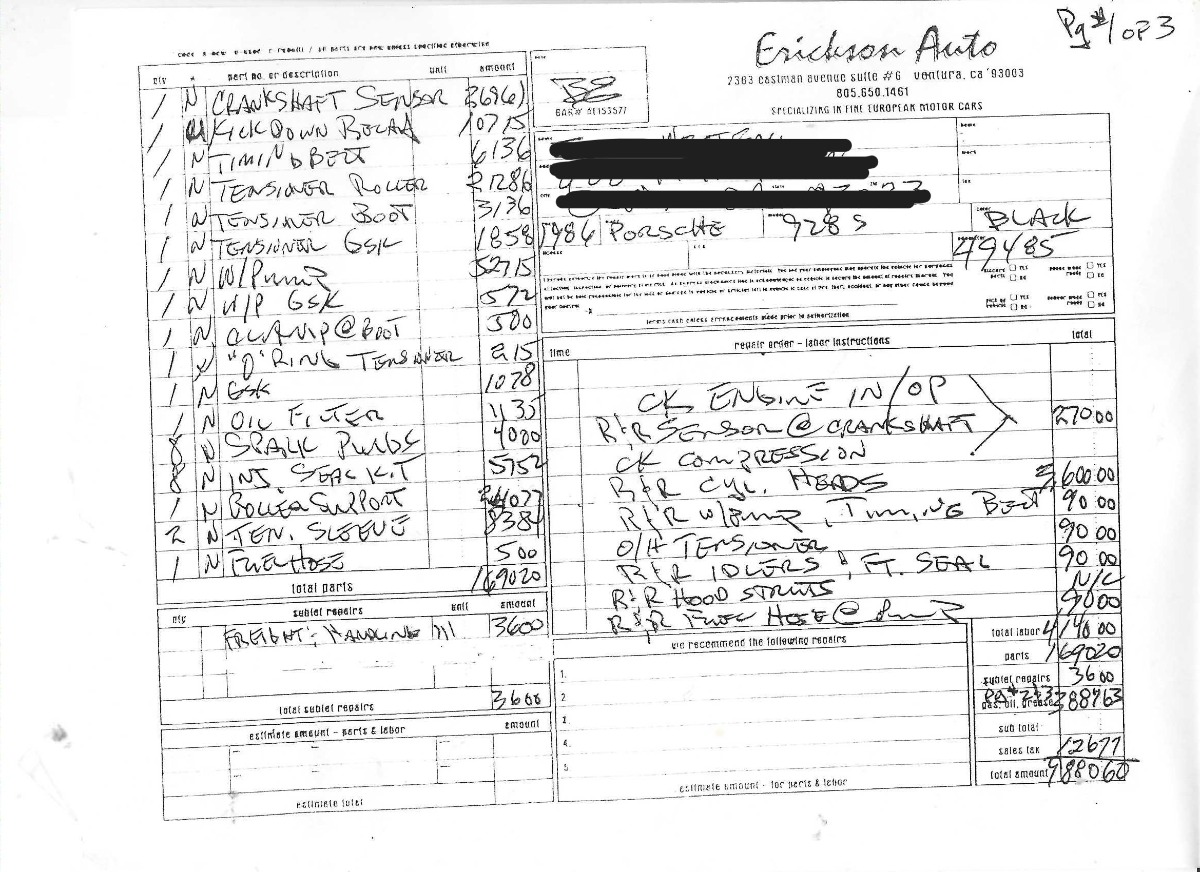 Pg #1 OF 3
Erickson Auto
2383 eastman avenue suite #6 ventura, ca 93003
805.650.1461
SPECIALIZING IN FINE EUROPEAN MOTOR CARS
BAR# AE153577
1986 PORSCHE 928 S BLACK
49485
terms cash unless arrangements made prior to authorization
qty part no. or description unit amount
1 N CRANKSHAFT SENSOR
1 N KICKDOWN 10715
1 N TIMING BELT 6136
1 N TENSIONER ROLLER 21286
1 N TENSIONER BOOT 3136
1 N TENSIONER GSK 1858
1 N W/PUMP 52715
1 N W/P GSK 572
1 N CLAMP @ BOOT 500
1 N "O" RING TENSIONER 215
1 N GSK 1078
1 N OIL FILTER 1135
8 N SPARK PLUGS 4000
8 N INJ. SEAL KIT 5752
1 N ROLLER SUPPORT
2 N TEN. SLEEVE 838
1 N FUEL HOSE 500
total parts 169020
qty sublet repairs unit amount
FREIGHT & HANDLING 3600
total sublet repairs 3600
estimate amount - parts & labor amount
estimate total
time repair order - labor instructions total
CK ENGINE IN/OP
R&R SENSOR @ CRANKSHAFT 27000
CK COMPRESSION
R&R CYL. HEADS 3,60000
R&R W/PUMP, TIMING BELT 9000
O/H TENSIONER 9000
R&R IDLERS & FT. SEAL 9000
R&R HOOD STRUTS N/C
R&R FUEL HOSE @ PUMP 9000
we recommend the following repairs
1.
2
3.
4.
5
estimate amount - for parts & labor
total labor 419000
parts 169020
sublet repairs 3600
Pg # 2&3
gas, oil, grease 388763
sub total
sales tax 12677
total amount 988060